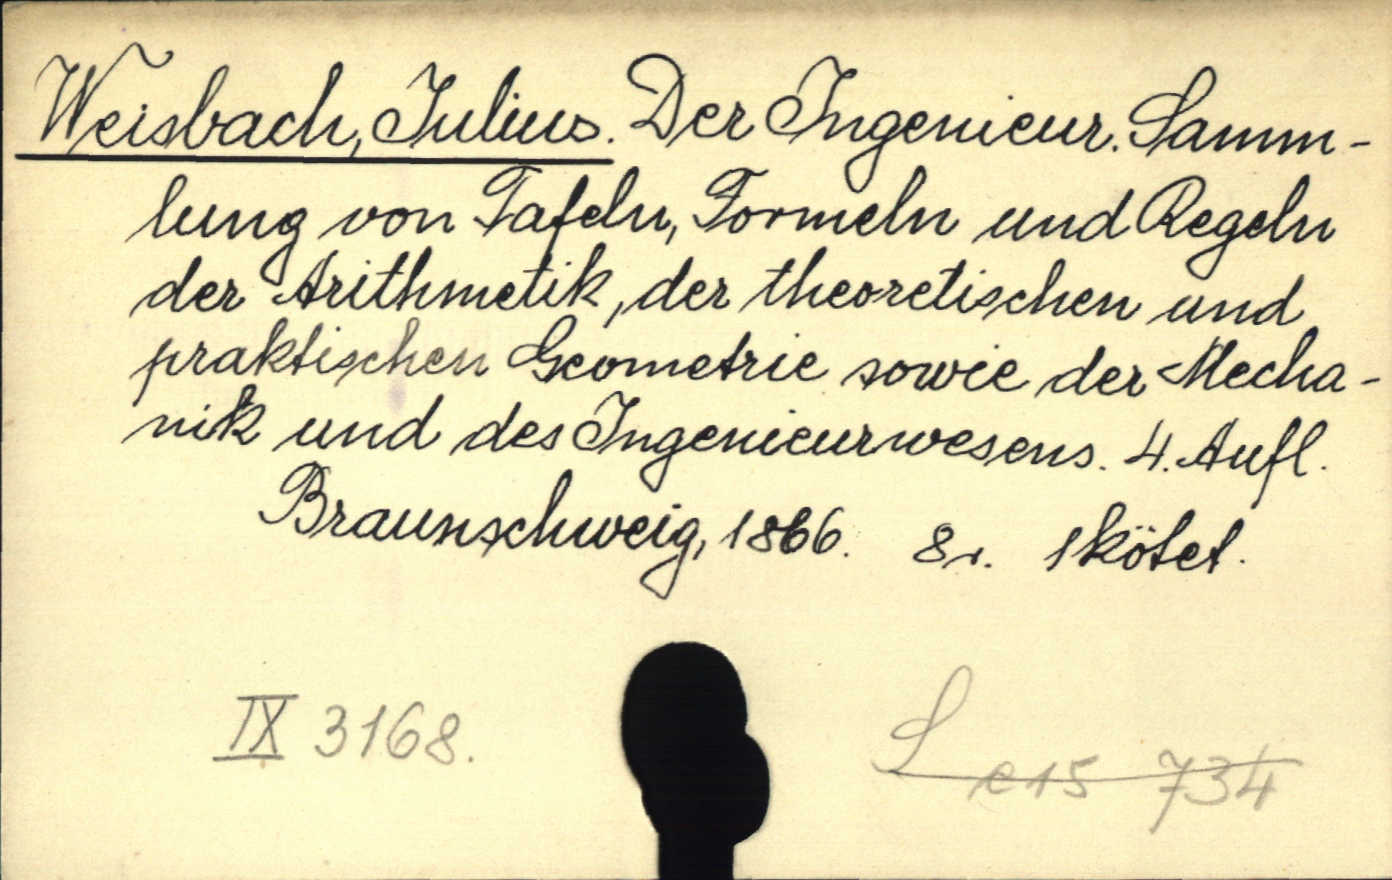 Weisbach, Julius. Der Ingenieur. Samm-
lung von Tafeln, Formeln und Regeln
der Arithmetik, der theoretischen und
praktischen Geometrie sowie der Mecha-
nik und des Ingenieurwesens. 4. Aufl.
Braunschweig, 1866. 8r. 1 kötet.
IX 3168. L e15 734